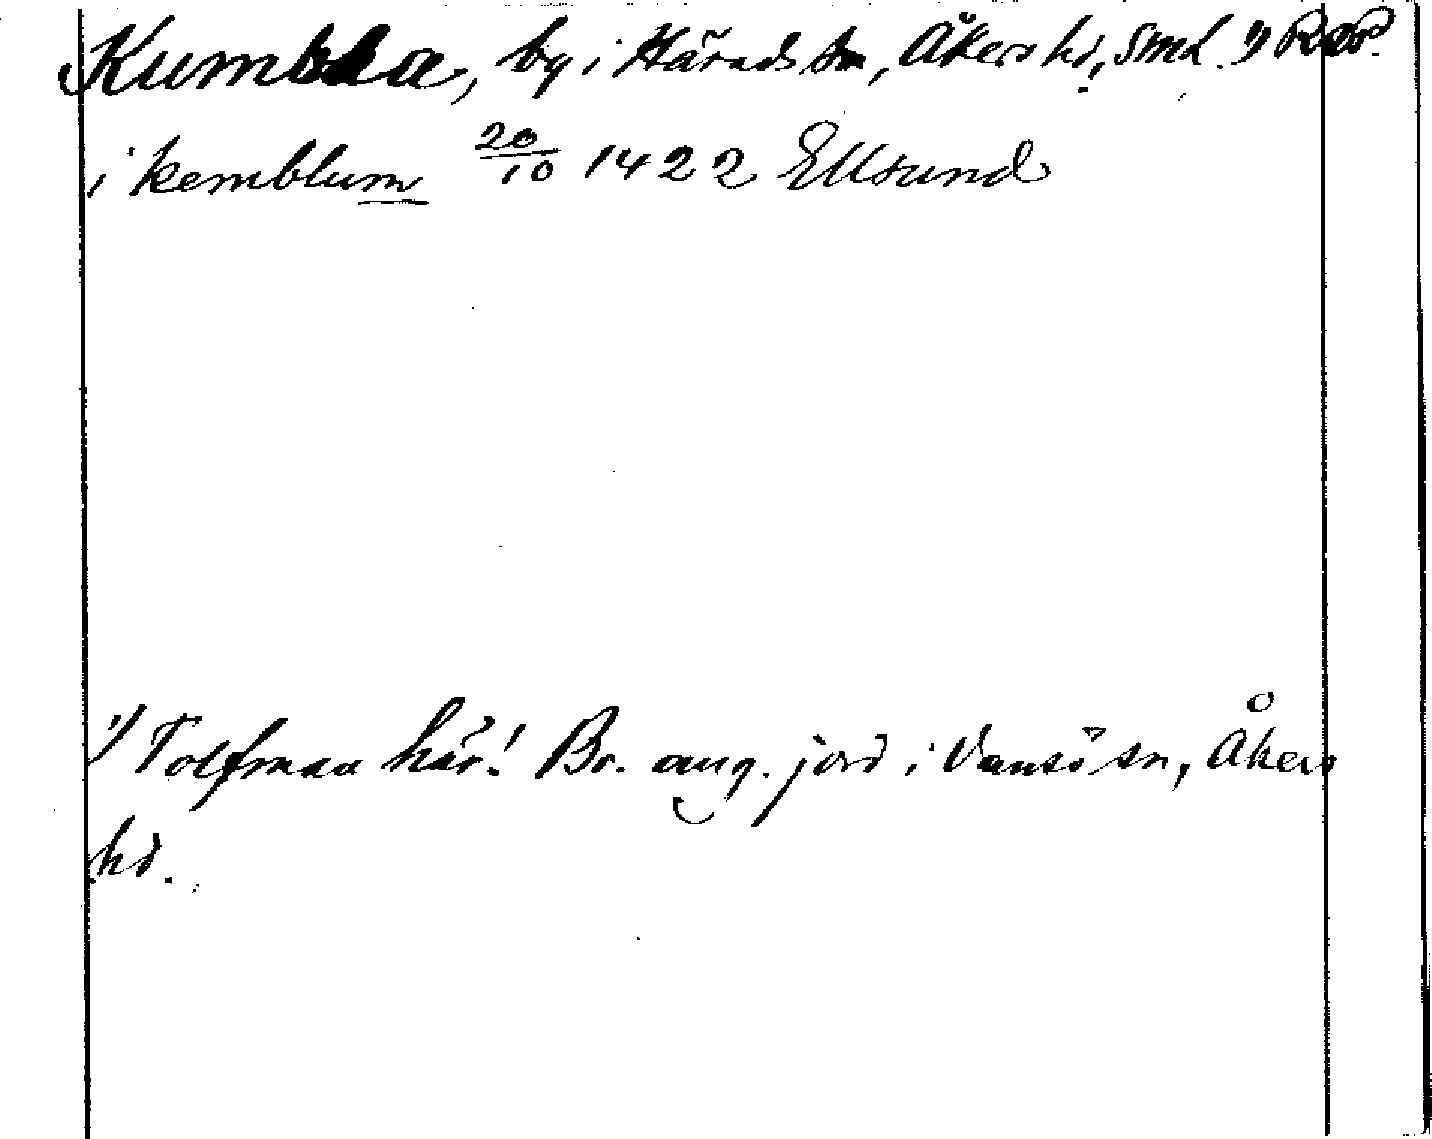 Kumbla, by i Härads sn, Åkers hd, Smd. 1) RAP.
i kemblum 20/10 1422 Ellsund
1) Tolfman här! Br. ang. jord i Vansö sn, Åkers
hd.